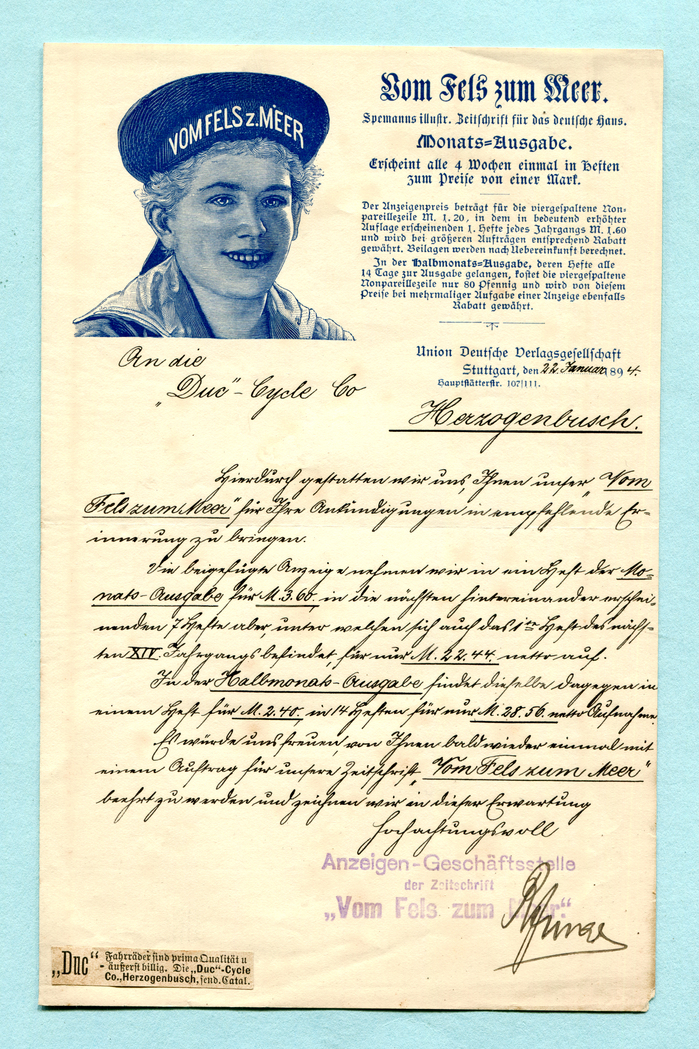 VOM FELS Z. MEER
Vom Fels zum Meer.
Spemanns illustr. Zeitschrift für das deutsche Haus.
Monats-Ausgabe.
Erscheint alle 4 Wochen einmal in Heften
zum Preise von einer Mark.
Der Anzeigenpreis beträgt für die viergespaltene Non-
pareillezeile M. 1.20, in dem in bedeutend erhöhter
Auflage erscheinenden 1. Hefte jedes Jahrgangs M. 1.60
und wird bei größeren Aufträgen entsprechend Rabatt
gewährt. Beilagen werden nach Uebereinkunft berechnet.
In der Halbmonats-Ausgabe, deren Hefte alle
14 Tage zur Ausgabe gelangen, kostet die viergespaltene
Nonpareillezeile nur 80 Pfennig und wird von diesem
Preise bei mehrmaliger Aufgabe einer Anzeige ebenfalls
Rabatt gewährt.
Union Deutsche Verlagsgesellschaft
Stuttgart, den 22. Januar 1894.
Hauptstätterstr. 107/111.
An die
„Duc"-Cycle Co
Herzogenbusch.
Hierdurch gestatten wir uns, Ihnen unser „Vom
Fels zum Meer" für Ihre Ankündigungen in empfehlende Er-
innerung zu bringen.
Die beigefügte Anzeige nehmen wir in ein Heft der Mo-
nats-Ausgabe für M. 3.60, in die nächsten hintereinander erschei-
nenden 7 Hefte aber, unter welchen sich auch das 1te Heft des näch-
sten XIV. Jahrgangs befindet, für nur M. 22.44. netto auf.
In der Halbmonats-Ausgabe findet dieselbe dagegen in
einem Heft für M. 2.40, in 14 Heften für nur M. 28.56. netto Aufnahme.
Es würde uns freuen, von Ihnen bald wieder einmal mit
einem Auftrag für unsere Zeitschrift „Vom Fels zum Meer"
beehrt zu werden und zeichnen wir in dieser Erwartung
Hochachtungsvoll
Anzeigen-Geschäftsstelle
der Zeitschrift
„Vom Fels zum Meer."
„Duc" Fahrräder sind prima Qualität u
- äußerst billig. Die „Duc"-Cycle
Co., Herzogenbusch, send. Catal.